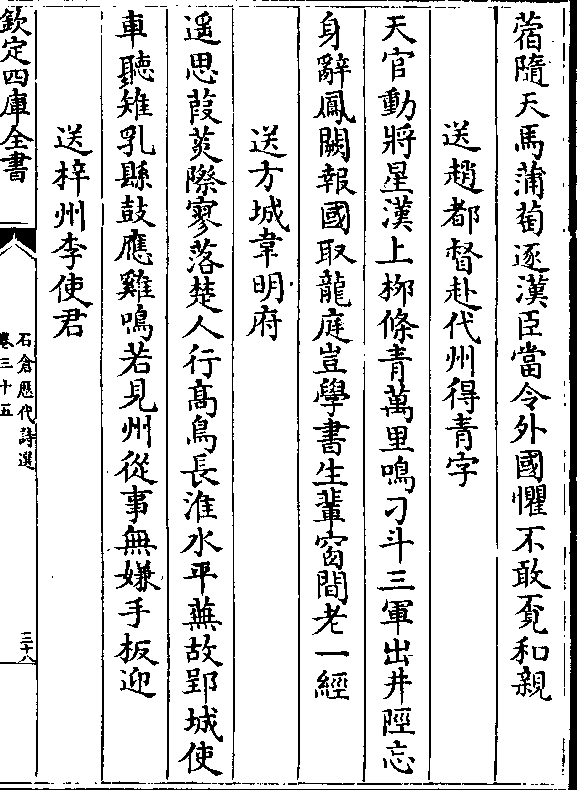 蓿隨天馬蒲萄逐漢臣當令外國懼不敢覔和親
送趙都督赴代州得青字
天官動將星漢上栁條青萬里鳴刁斗三軍出井陘忘
身辭鳳闕報國取龍庭豈學書生輩窗間老一經
送方城韋明府
遥思葭菼際寥落楚人行髙鳥長淮水平蕪故郢城使
車聽雉乳縣鼓應雞鳴若見州從事無嫌手板迎
送梓州李使君
欽定四庫全書
石倉厯代詩選
卷三十五
三十八